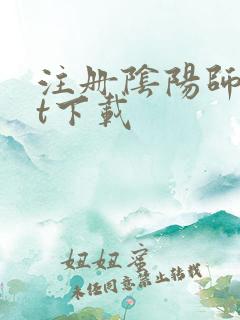 注册陰陽師
t下載
妞妞蜜
未经同意禁止转载